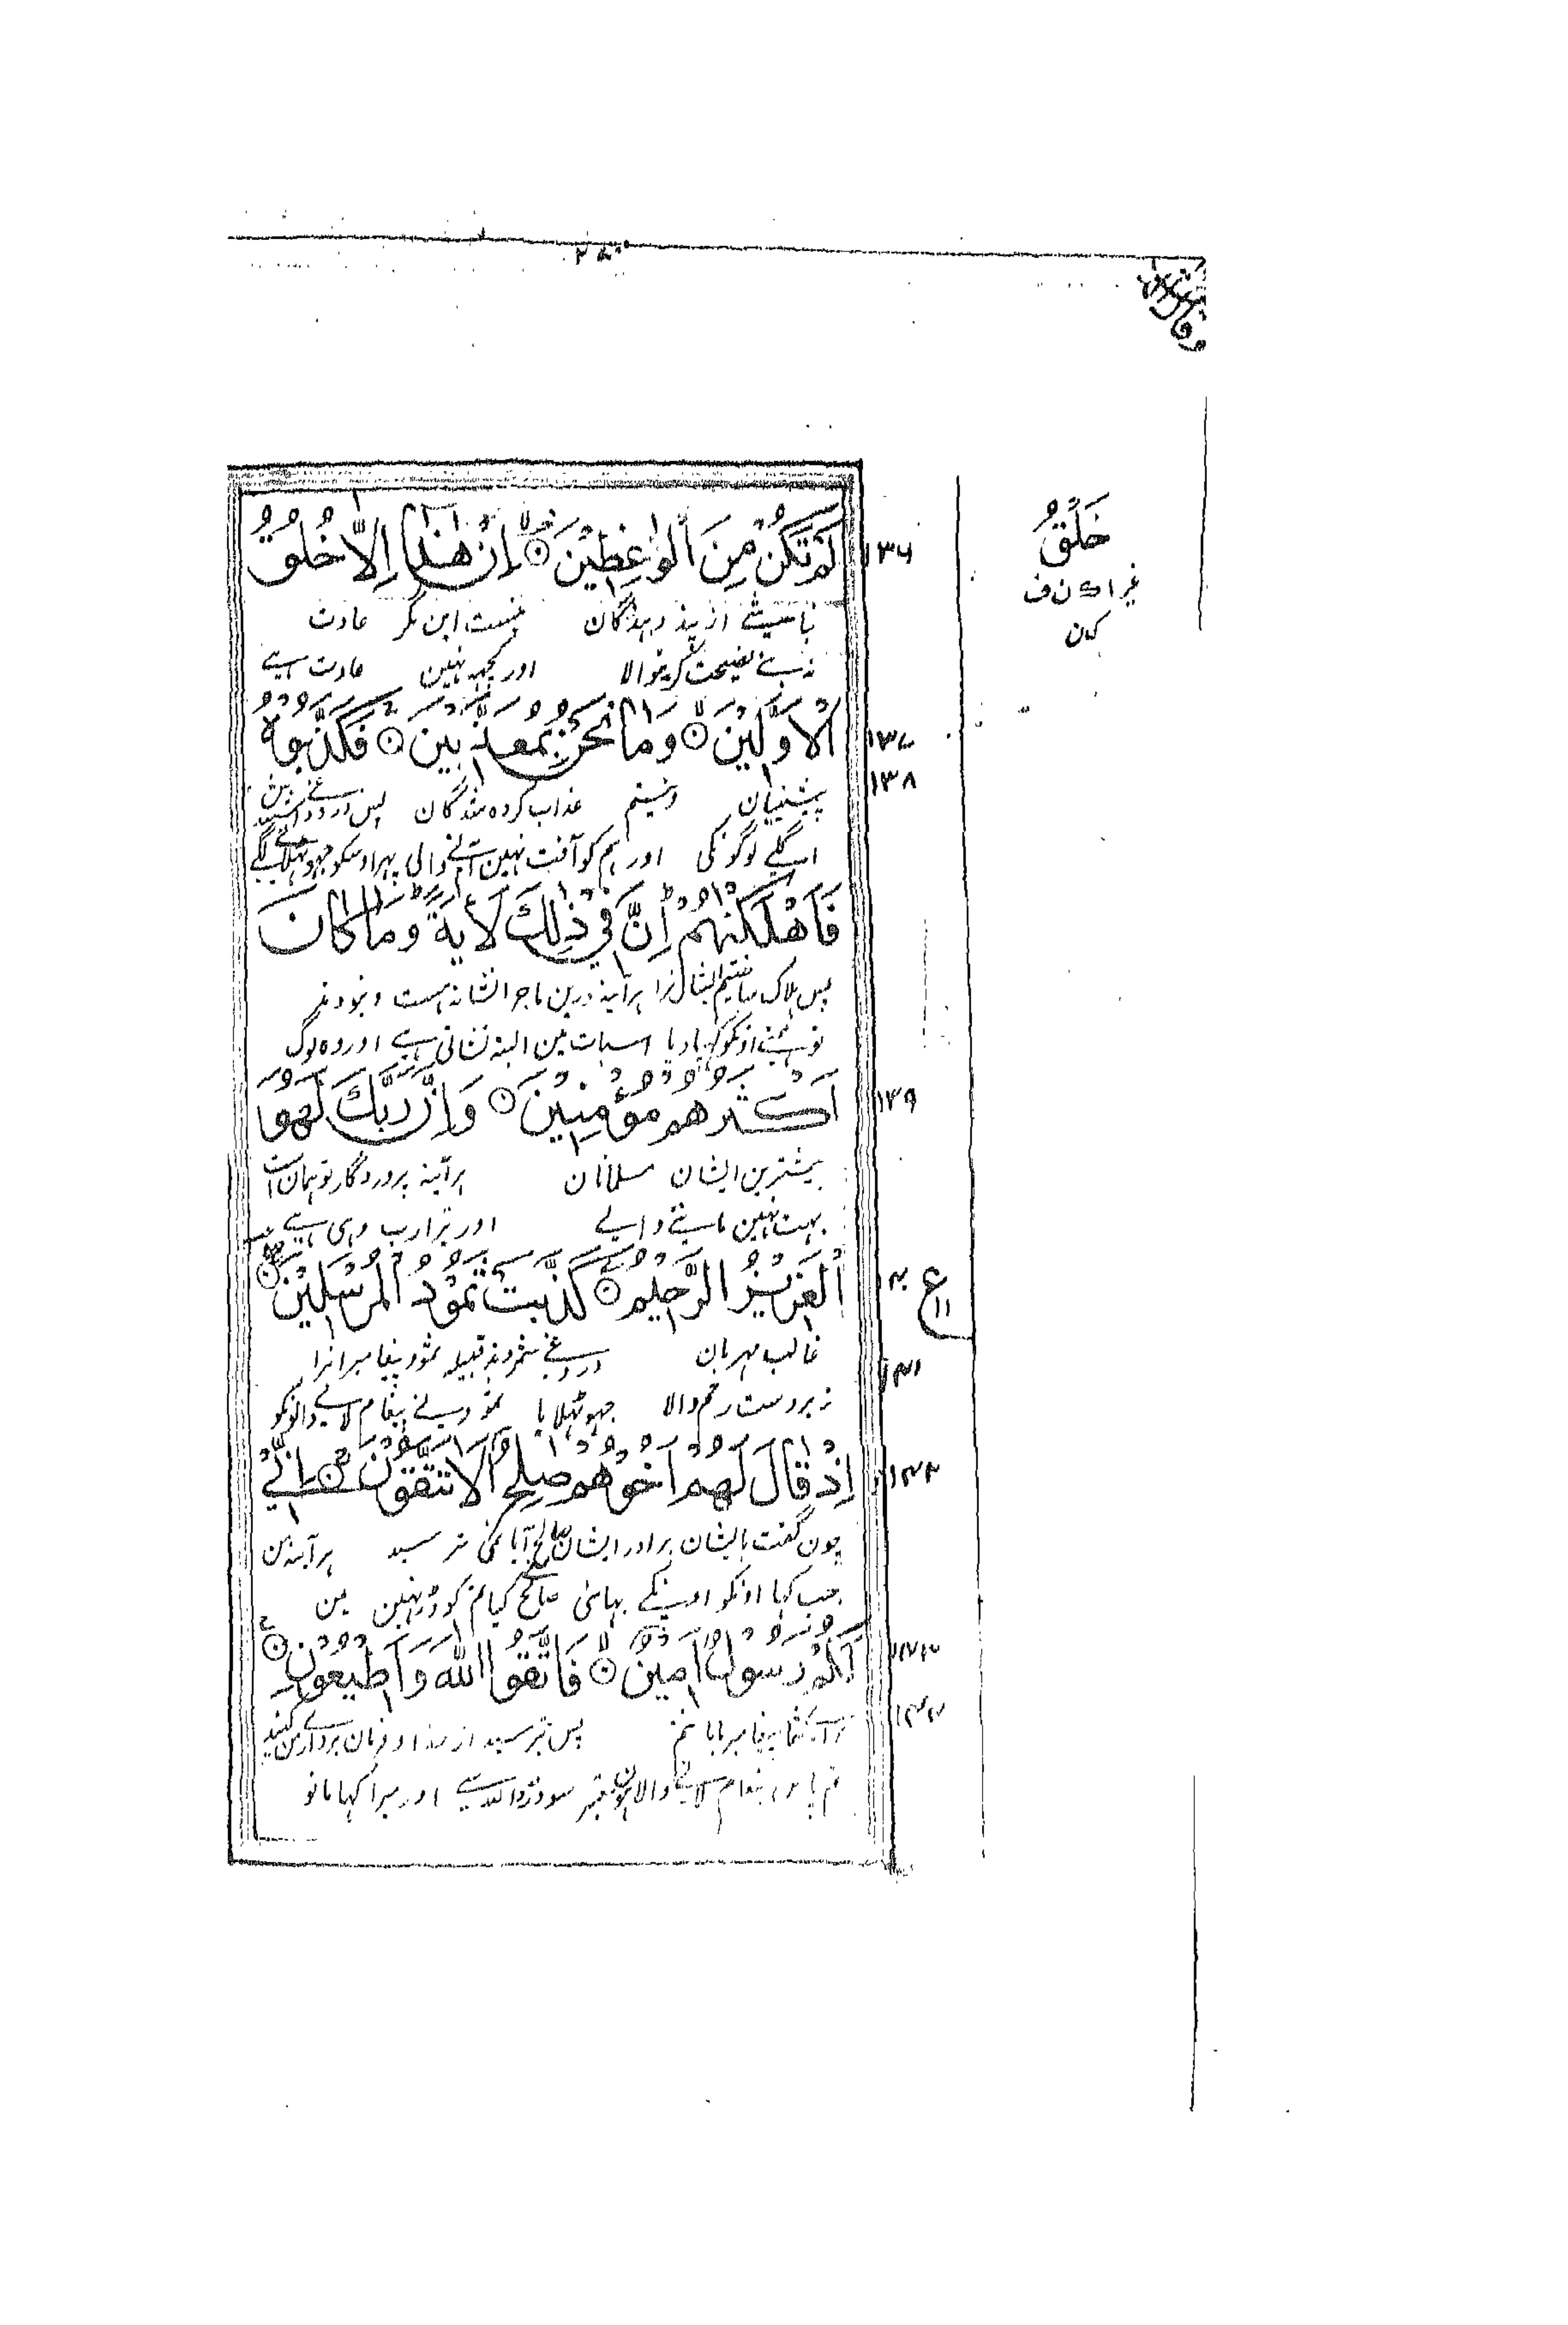 لَمْ تَكُنْ مِنَ الْوٰعِظِيْنَ ۙ اِنْ هٰذَا اِلَّا خُلُقُ
۱۳۶
خَلْقُ
نباشی از پند دهندگان نیست این مگر عادت
نہ بنے نصیحت کرینوالا اور کچہہ نہین عادت ہے
الْاَوَّلِيْنَ ۙ وَمَا نَحْنُ بِمُعَذَّبِيْنَ ۚ فَكَذَّبُوْهُ
۱۳۷
۱۳۸
پیشینیان و نیستیم عذاب کرده شدگان پس
اگلے لوگونکی اور ہم کو آفت نہین آنے والی پہر اوسکو جھوٹھلانے لگے
فَاَهْلَكْنٰهُمْ ؕ اِنَّ فِيْ ذٰلِكَ لَاٰيَةً ؕ وَمَا كَانَ
پس ہلاک ساختیم ایشان را ہر آینہ درین ماجرا نشانہ ہست و نبودند
تو ہمنے اونکو کہپا دیا اسبات مین البتہ نشانی ہے اور وہ لوگ
اَكْثَرُهُمْ مُؤْمِنِيْنَ ۞ وَاِنَّ رَبَّكَ لَهُوَ
۱۳۹
بیشترین ایشان مسلمانان ہر آینہ پروردگار تو ہمان است
بہت نہین ماننے والے اور تیرا رب وہی ہے
الْعَزِيْزُ الرَّحِيْمُ ۞ كَذَّبَتْ ثَمُوْدُ الْمُرْسَلِيْنَ
۱۴۰
ع ۱۱
غالب مہربان دروغی شمردند قبیلہ ثمود پیغامبرانرا
۱۴۱
زبردست رحم والا جہوٹھلایا ثمود نے پیغام لانے والونکو
اِذْ قَالَ لَهُمْ اَخُوْهُمْ صٰلِحٌ اَلَا تَتَّقُوْنَ ۚ اِنِّيْ
۱۴۲
چون گفت بایشان برادر ایشان صالح آیا نمی ترسید ہر آینہ من
جب کہا اونکو اونکے بہائی صالح کیا تم کو ڈر نہین مین
لَكُمْ رَسُوْلٌ اَمِيْنٌ ۙ فَاتَّقُوا اللّٰهَ وَاَطِيْعُوْنِ ۚ
۱۴۳
برائے شما پیغامبر با پس بترسید از خدا و فرمان برداری من کنید
۱۴۴
پیغام لانے والا ہون معتبر سو ڈرو اللہ سے اور میرا کہا مانو